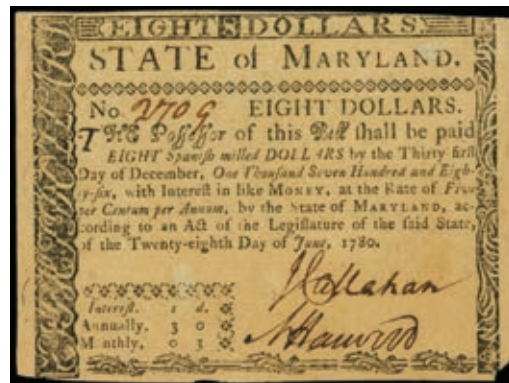 EIGHT 8 DOLLARS.
STATE of MARYLAND.
No 2709 EIGHT DOLLARS.
THE Possessor of this Bill shall be paid
EIGHT Spanish milled DOLLARS by the Thirty first
Day of December, One Thousand Seven Hundred and Eigh-
ty-six, with Interest in like MONEY, at the Rate of Five
per Centum per Annum, by the State of MARYLAND, ac-
cording to an Act of the Legislature of the said State,
of the Twenty-eighth Day of June, 1780.
J Callahan
Interest. s d.
Annually. 3 0
Monthly. 0 3
N Harwood